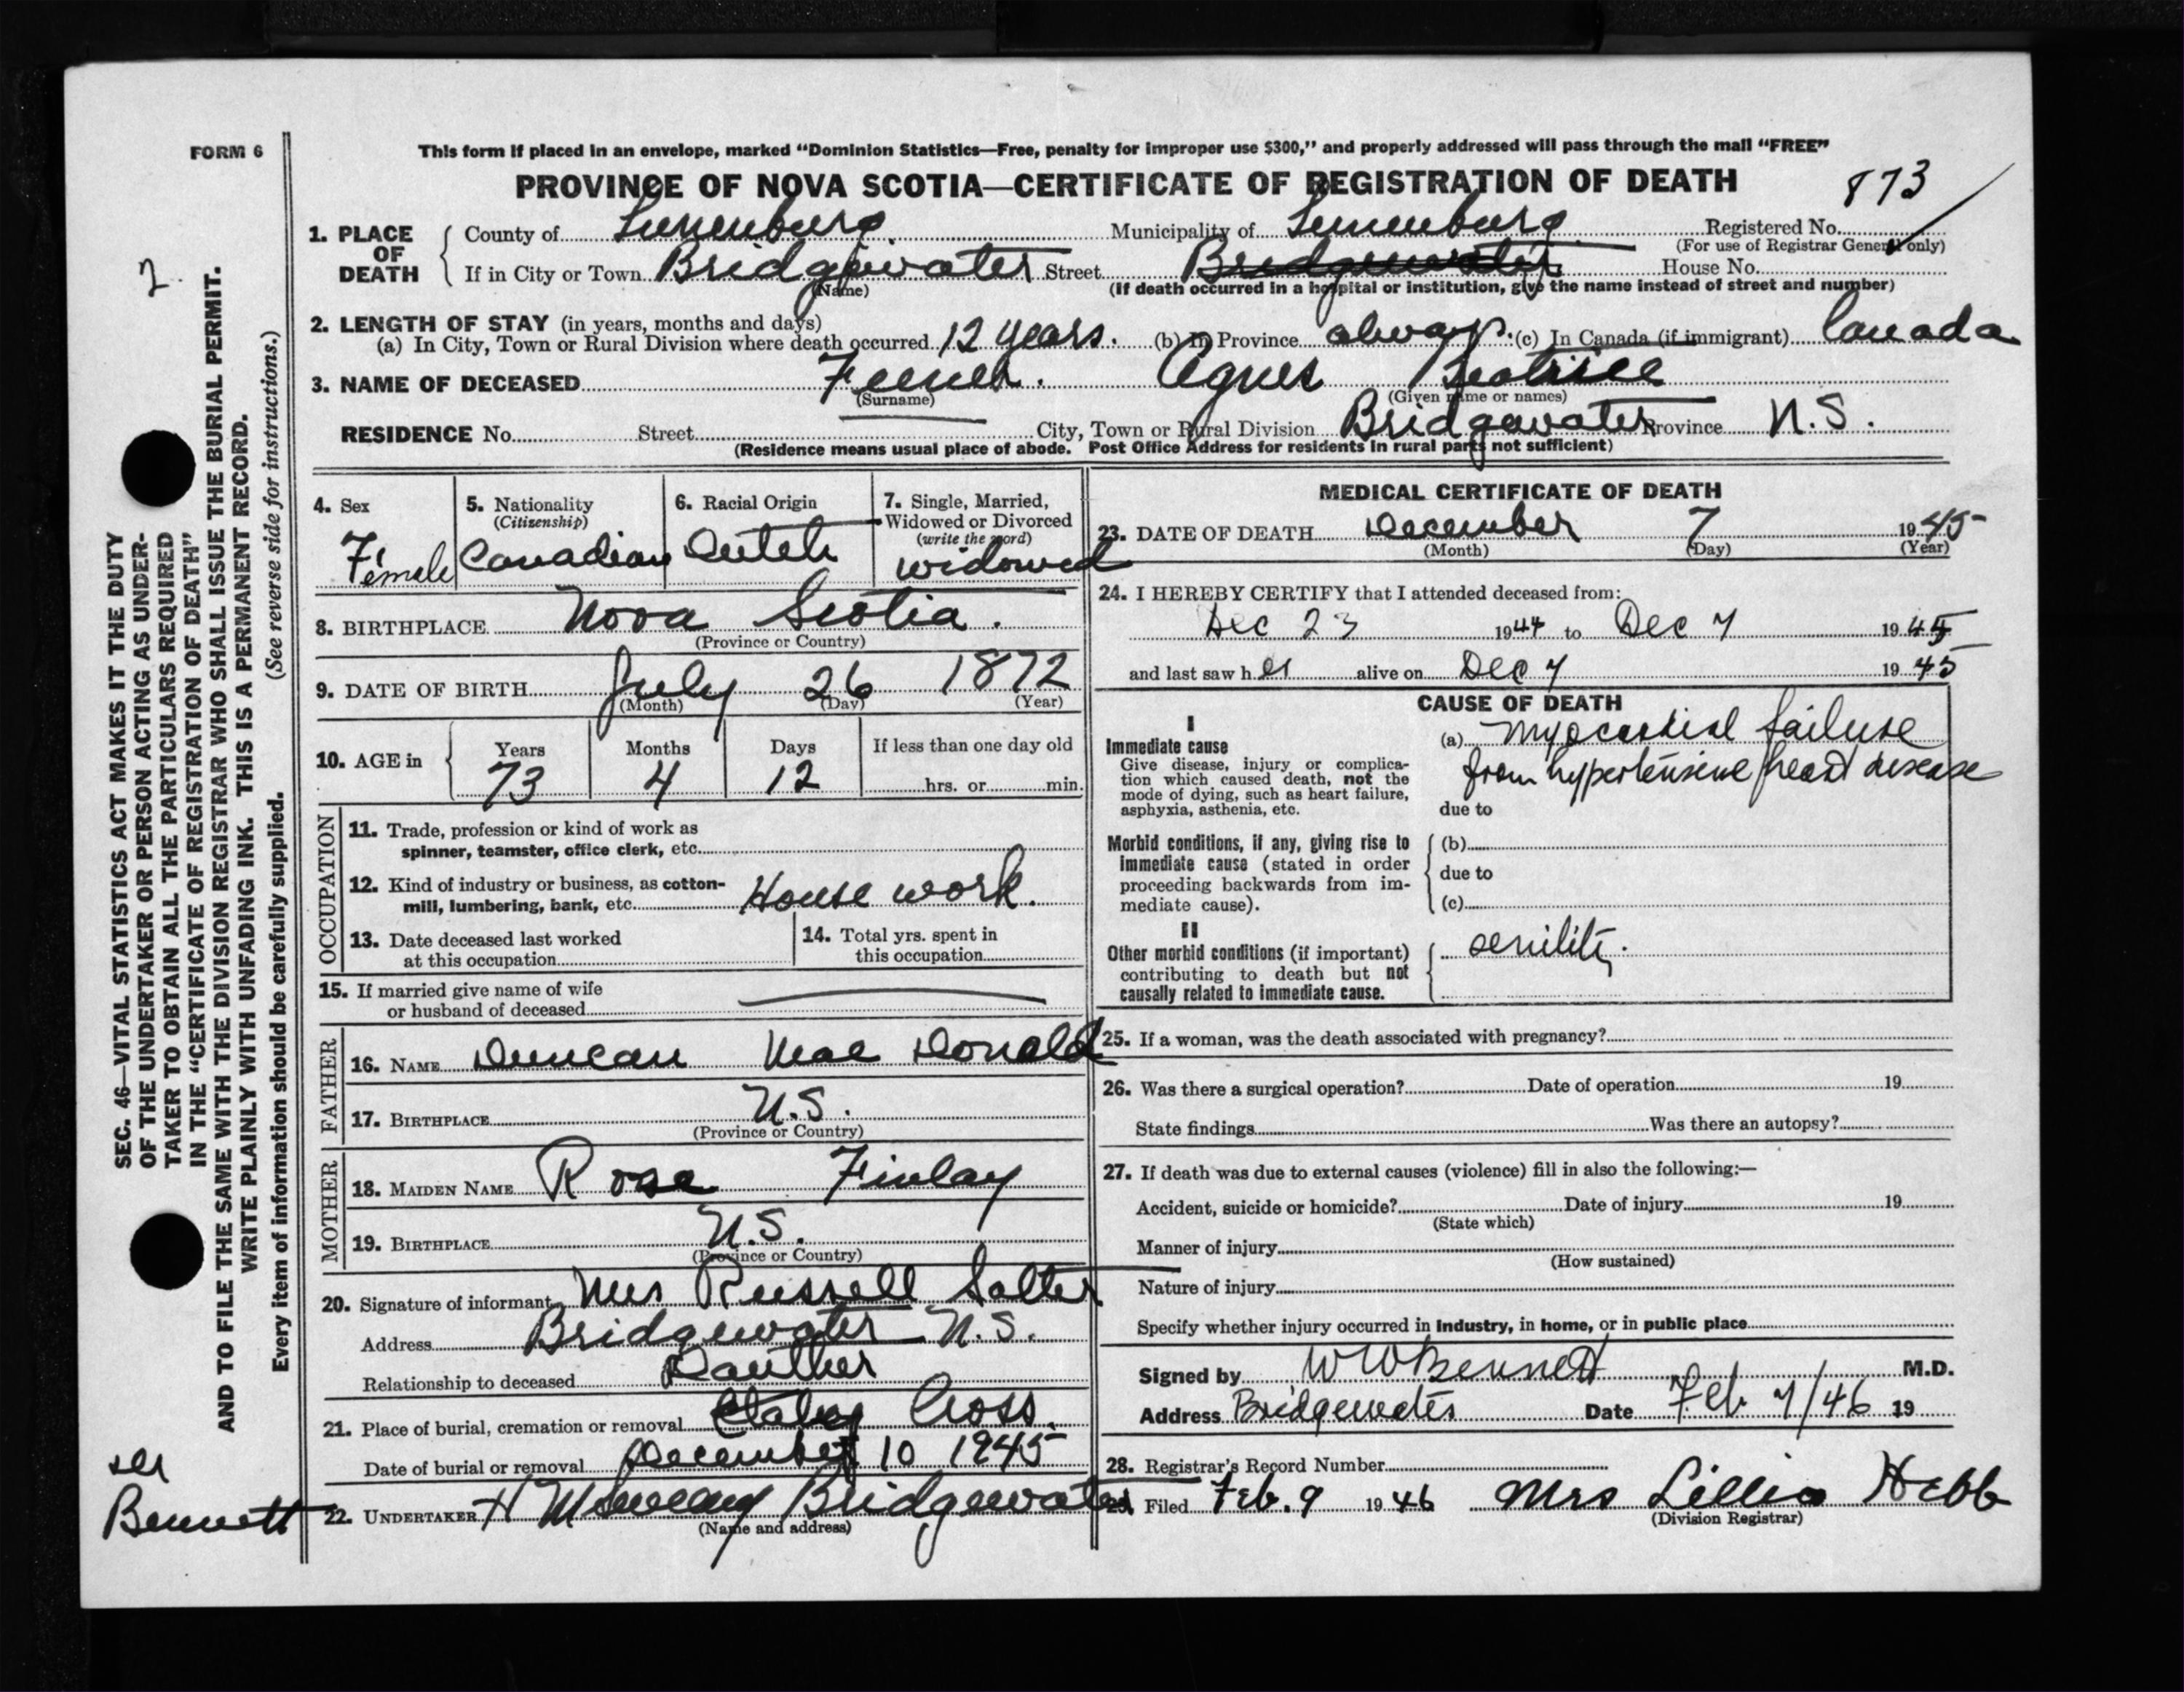 FORM 6
This form if placed in an envelope, marked "Dominion Statistics—Free, penalty for improper use $300," and properly addressed will pass through the mail "FREE"
PROVINCE OF NOVA SCOTIA—CERTIFICATE OF REGISTRATION OF DEATH 873
1. PLACE OF DEATH
County of Lunenburg Municipality of Lunenburg Registered No.
(For use of Registrar General only)
If in City or Town Bridgewater Street Bridgewater House No.
(Name) (If death occurred in a hospital or institution, give the name instead of street and number)
2. LENGTH OF STAY (in years, months and days)
(a) In City, Town or Rural Division where death occurred 12 years. (b) In Province always. (c) In Canada (if immigrant) Canada
3. NAME OF DECEASED Agnes Beatrice
(Surname) (Given name or names)
RESIDENCE No. Street City, Town or Rural Division Bridgewater Province N.S.
(Residence means usual place of abode. Post Office Address for residents in rural parts not sufficient)
4. Sex
Female
5. Nationality
(Citizenship)
Canadian
6. Racial Origin
Dutch
7. Single, Married,
Widowed or Divorced
(write the word)
widowed
8. BIRTHPLACE Nova Scotia.
(Province or Country)
9. DATE OF BIRTH July 26 1872
(Month) (Day) (Year)
10. AGE in
Years Months Days If less than one day old
73 4 12 hrs. or min.
OCCUPATION
11. Trade, profession or kind of work as
spinner, teamster, office clerk, etc.
12. Kind of industry or business, as cotton-
mill, lumbering, bank, etc. House work.
13. Date deceased last worked
at this occupation
14. Total yrs. spent in
this occupation
15. If married give name of wife
or husband of deceased
FATHER
16. NAME Duncan Mac Donald
17. BIRTHPLACE N.S.
(Province or Country)
MOTHER
18. MAIDEN NAME Rose Finlay
19. BIRTHPLACE N.S.
(Province or Country)
20. Signature of informant Mrs Russell Salter
Address Bridgewater N.S.
Relationship to deceased Dauther
21. Place of burial, cremation or removal Cross.
Date of burial or removal December 10 1945
22. UNDERTAKER H Bridgewater
(Name and address)
MEDICAL CERTIFICATE OF DEATH
23. DATE OF DEATH December 7 1945
(Month) (Day) (Year)
24. I HEREBY CERTIFY that I attended deceased from:
Dec 23 1944 to Dec 7 1945
and last saw her alive on Dec 7 1945
CAUSE OF DEATH
I
Immediate cause
Give disease, injury or complica-
tion which caused death, not the
mode of dying, such as heart failure,
asphyxia, asthenia, etc.
(a) Myocardial failure
from hypertensive heart disease
due to
Morbid conditions, if any, giving rise to
immediate cause (stated in order
proceeding backwards from im-
mediate cause).
(b)
due to
(c)
II
Other morbid conditions (if important)
contributing to death but not
causally related to immediate cause.
senility.
25. If a woman, was the death associated with pregnancy?
26. Was there a surgical operation? Date of operation 19
State findings Was there an autopsy?
27. If death was due to external causes (violence) fill in also the following:—
Accident, suicide or homicide? Date of injury 19
(State which)
Manner of injury
(How sustained)
Nature of injury
Specify whether injury occurred in industry, in home, or in public place
Signed by W W Bennett M.D.
Address Bridgewater Date Feb 7/46 19
28. Registrar's Record Number
29. Filed Feb. 9 1946 Mrs Lillis Hebb
(Division Registrar)
2
SEC. 46—VITAL STATISTICS ACT MAKES IT THE DUTY
OF THE UNDERTAKER OR PERSON ACTING AS UNDER-
TAKER TO OBTAIN ALL THE PARTICULARS REQUIRED
IN THE "CERTIFICATE OF REGISTRATION OF DEATH"
AND TO FILE THE SAME WITH THE DIVISION REGISTRAR WHO SHALL ISSUE THE BURIAL PERMIT.
WRITE PLAINLY WITH UNFADING INK. THIS IS A PERMANENT RECORD.
Every item of information should be carefully supplied. (See reverse side for instructions.)
Bennett